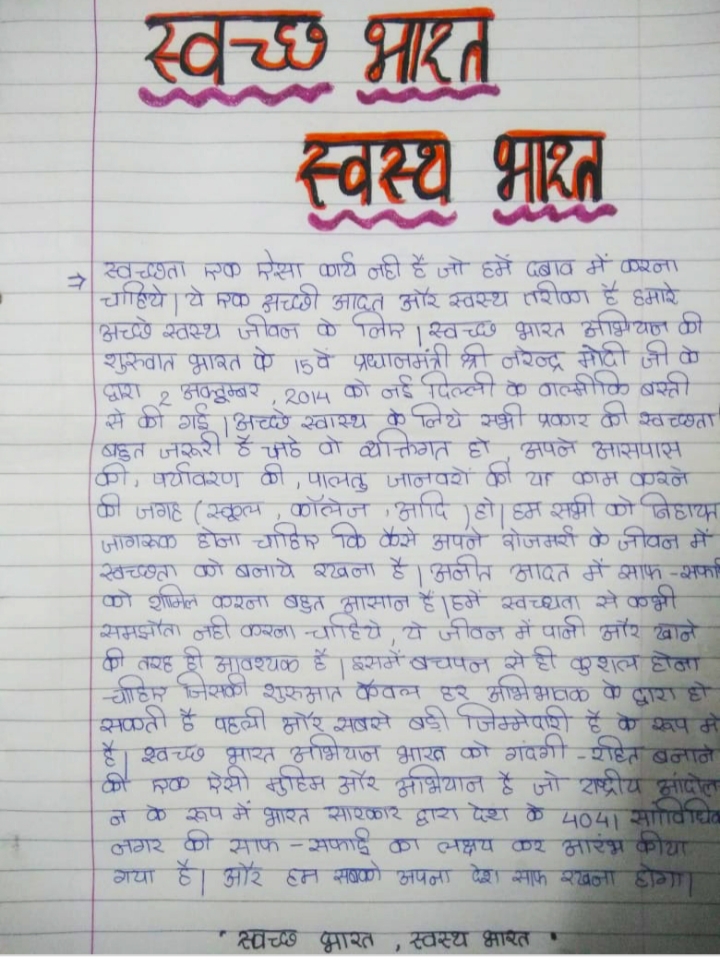 स्वच्छ भारत
स्वस्थ भारत
⇒ स्वच्छता एक ऐसा कार्य नही है जो हमें दबाव में करना
चाहिये। ये एक अच्छी आदत और स्वस्थ तरीका है हमारे
अच्छे स्वस्थ जीवन के लिए। स्वच्छ भारत अभियान की
शुरुवात भारत के 15वें प्रधानमंत्री श्री नरेन्द्र मोदी जी के
द्वारा 2 अक्टूम्बर, 2014 को नई दिल्ली के वाल्मीकि बस्ती
से की गई। अच्छे स्वास्थ के लिये सभी प्रकार की स्वच्छता
बहुत जरूरी है चाहे वो व्यक्तिगत हो, अपने आसपास
की, पर्यावरण की, पालतु जानवरों की या काम करने
की जगह (स्कूल, कॉलेज, आदि) हो। हम सभी को निहायत
जागरूक होना चाहिए कि कैसे अपने रोजमर्रा के जीवन में
स्वच्छता को बनाये रखना है। अनीत आदत में साफ-सफाई
को शामिल करना बहुत आसान है। हमें स्वच्छता से कभी
समझौता नही करना चाहिये, ये जीवन में पानी और खाने
की तरह ही आवश्यक है। इसमें बचपन से ही कुशल होना
चाहिए जिसकी शुरुआत केवल हर अभिभावक के द्वारा हो
सकती है पहली और सबसे बड़ी जिम्मेदारी है के रूप में
है। स्वच्छ भारत अभियान भारत को गंदगी-रहित बनाने
की एक ऐसी मुहिम और अभियान है जो राष्ट्रीय आंदोल
न के रूप में भारत सारकार द्वारा देश के 4041 सांविधिक
नगर की साफ-सफाई का लक्षय कर आरंभ कीया
गया है। और हम सबको अपना देश साफ रखना होगा।
• स्वच्छ भारत, स्वस्थ भारत •